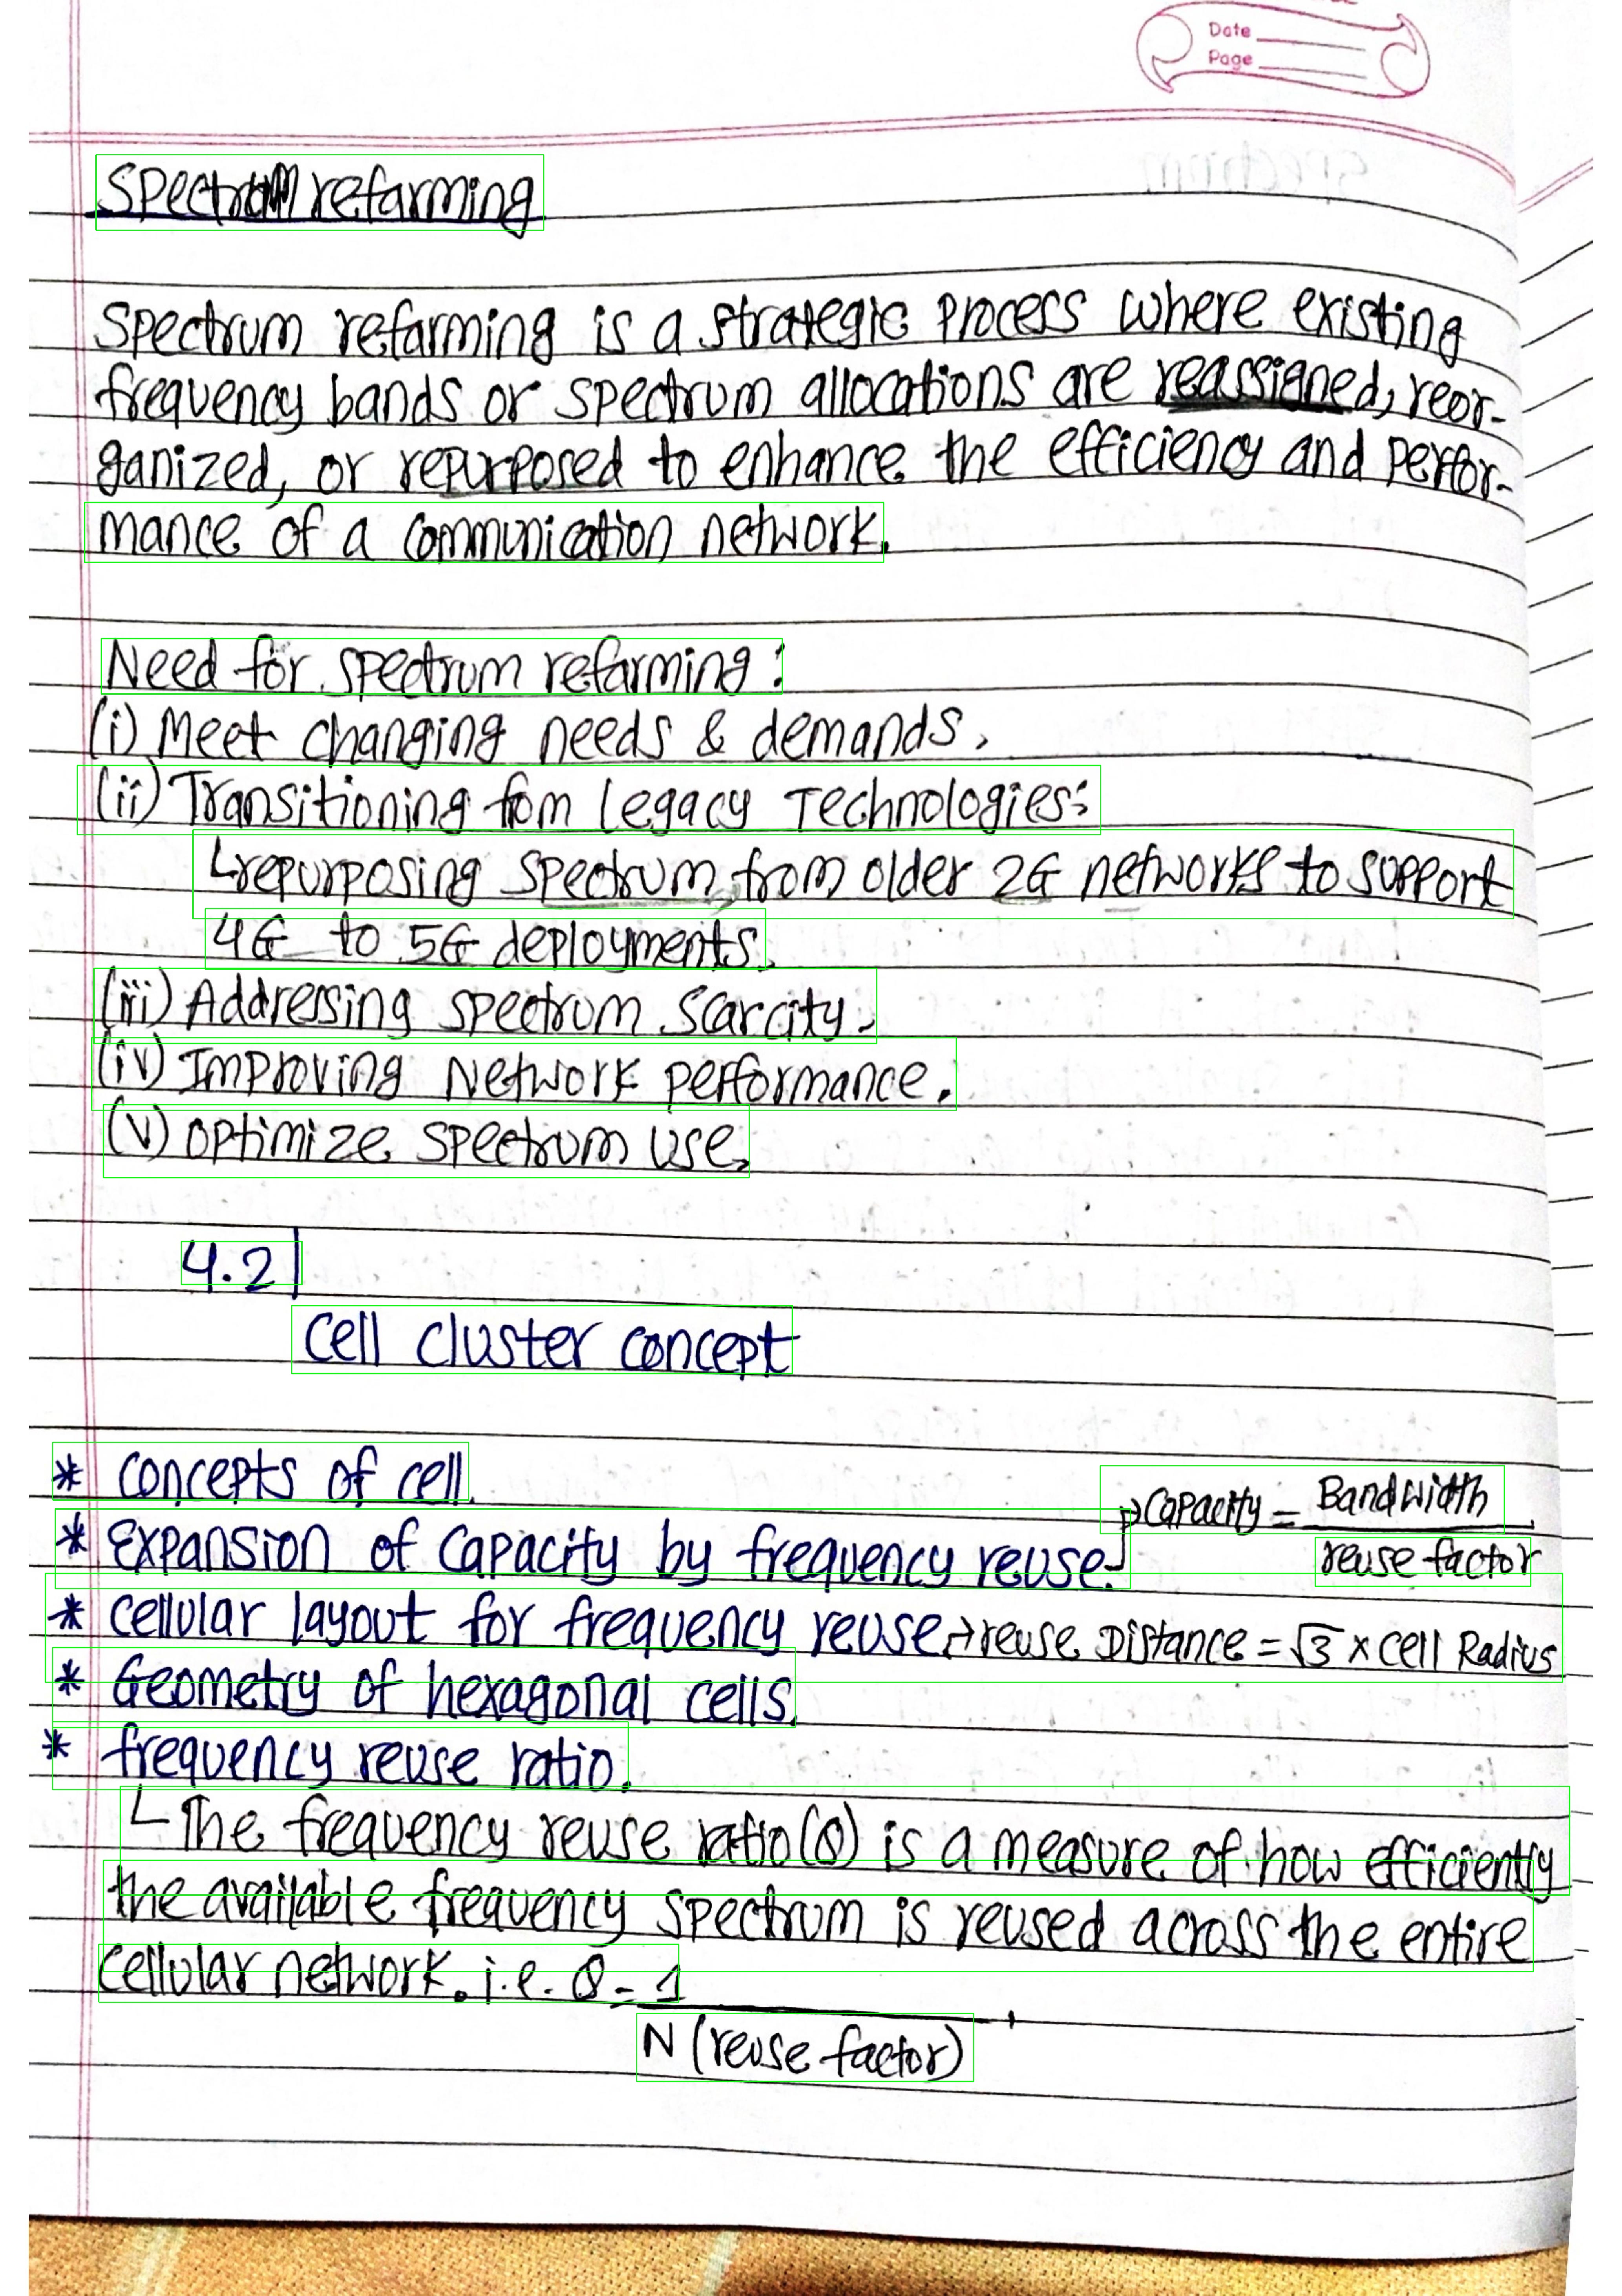 Date
Page
Spectrum refarming
Spectrum refarming is a strategic process where existing
frequency bands or spectrum allocations are reassigned, reor-
ganized, or repurposed to enhance the efficiency and perfor-
mance of a communication network.
Need for spectrum refarming :
(i) Meet changing needs & demands,
(ii) Transitioning from Legacy Technologies:
↳repurposing spectrum, from older 2G networks to support
4G to 5G deployments.
(iii) Addressing spectrum scarcity.
(iv) Improving Network performance.
(v) optimize spectrum use.
4.2
Cell cluster concept
* Concepts of cell.
* Expansion of capacity by frequency reuse. → Capacity = Bandwidth
reuse factor
* Cellular layout for frequency reuse → reuse Distance = √3 × cell Radius
* Geometry of hexagonal cells.
* frequency reuse ratio.
↳ The frequency reuse ratio(Q) is a measure of how efficiently
the available frequency spectrum is reused across the entire
cellular network. i.e. Q = 1
N (reuse factor)